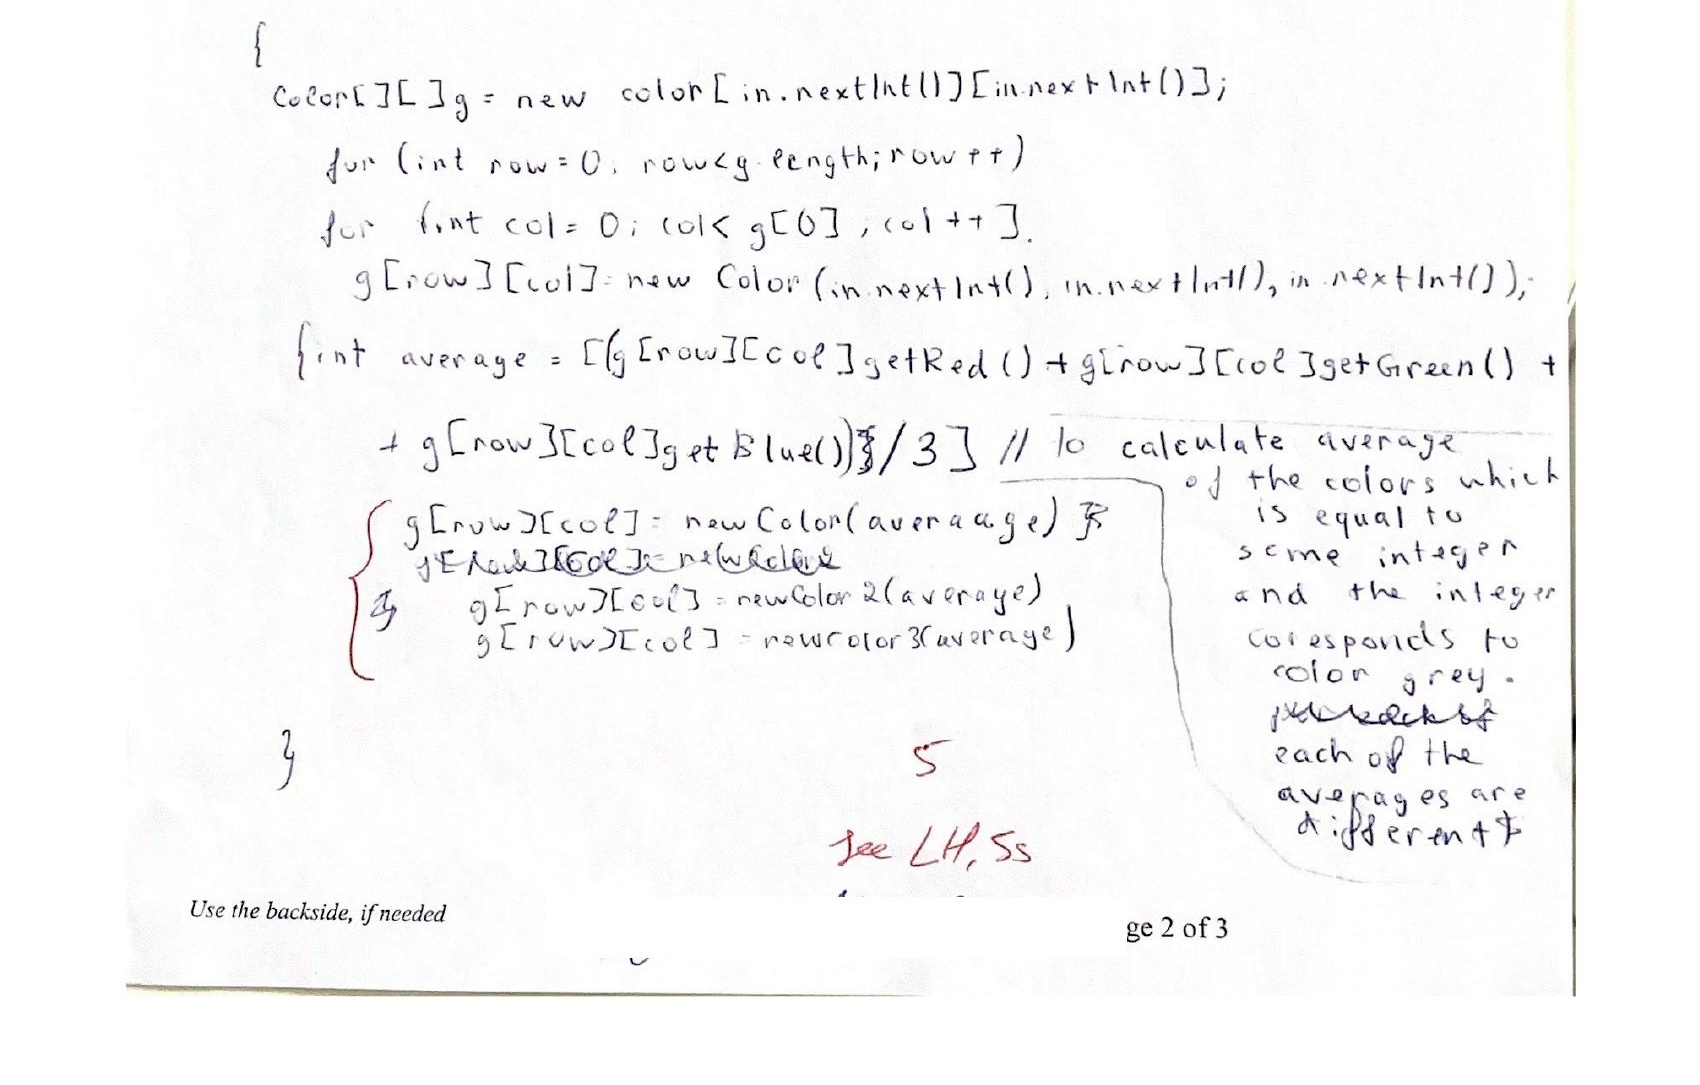 {
Color[][]g = new color[in.nextInt()][in.nextInt()];
for (int row=0; row<g.length; row++)
for (int col= 0; col< g[0], col++].
g[row][col]= new Color(in.nextInt(), in.nextInt(), in.nextInt());
{int average = [(g[row][col]getRed() + g[row][col]getGreen() +
+ g[row][col]getBlue())/3] // to calculate average
of the colors which
is equal to
some integer
and the integer
coresponds to
color grey.
each of the
averages are
different
g[row][col]= new Color(averaage)
g[row][col] = newColor2(average)
g[row][col] = newcolor3(average)
}
5
See LH, Ss
Use the backside, if needed
ge 2 of 3